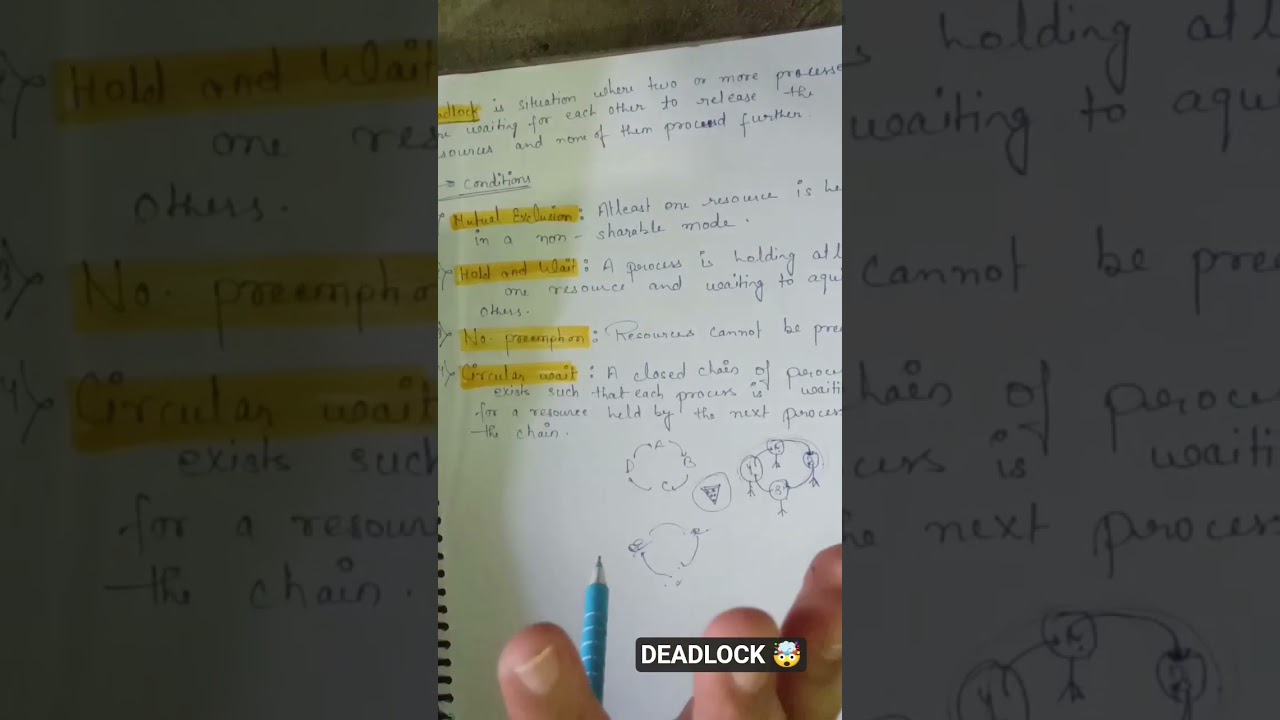 adlock is situation where two or more processe
re waiting for each other to release the
sources and none of them proceed further.
→ Conditions
Mutual Exclusion : Atleast one resource is he
in a non - sharable mode.
Hold and Wait : A process is holding atl
one resource and waiting to aqu
others.
3) No. preemption : Resources cannot be pree
4) Circular wait : A closed chain of proces
exists such that each process is waitin
for a resource held by the next process
the chain.
A
D B
C
DEADLOCK 🤯